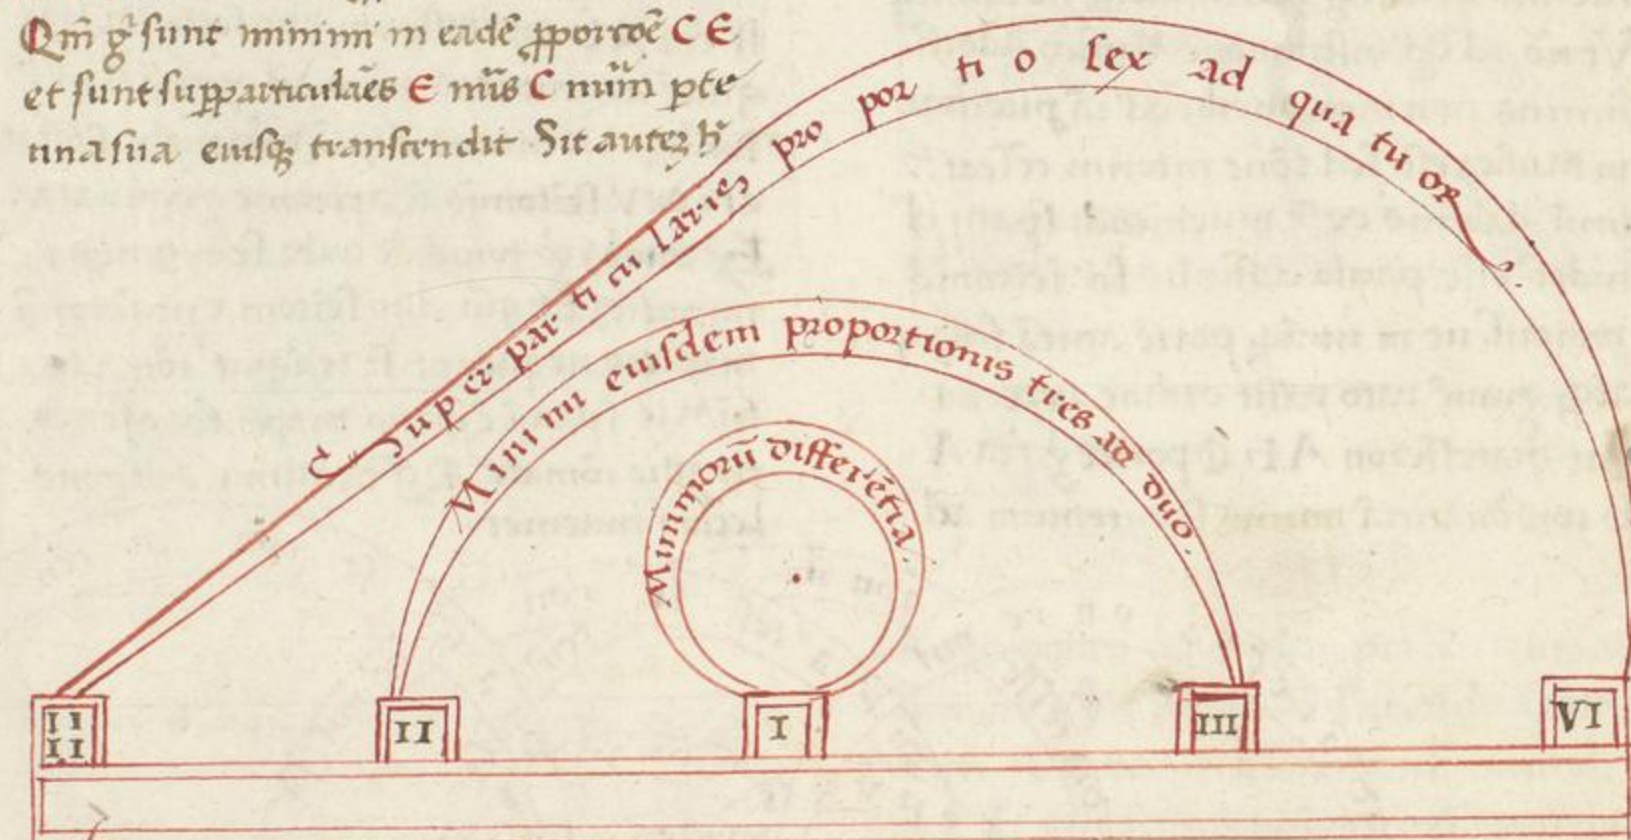 Qm̄ gͥ sunt minimi in eadē ꝓportoē C E
et sunt suꝑparticulāēs E nūs C nūm ꝑte
una sua eiusqꝫ transcendit Sit autēꝫ h̄
Super par ti cu laris pro por ti o sex ad qua tu or
Minimi eiusdem proportionis tres ad duo.
Minimorū differētia.
II
II
II
I
III
VI